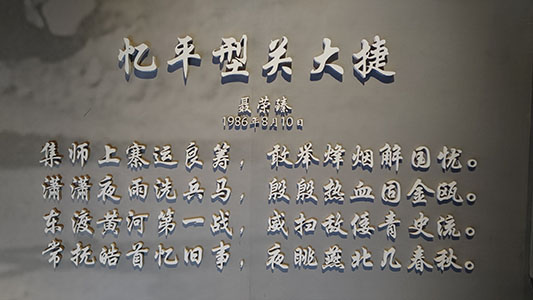 忆平型关大捷
聂荣臻
1986年8月10日
集师上寨运良筹，敢举烽烟解国忧。
潇潇夜雨洗兵马，殷殷热血固金瓯。
东渡黄河第一战，威扫敌倭青史流。
常抚皓首忆旧事，夜眺燕北几春秋。